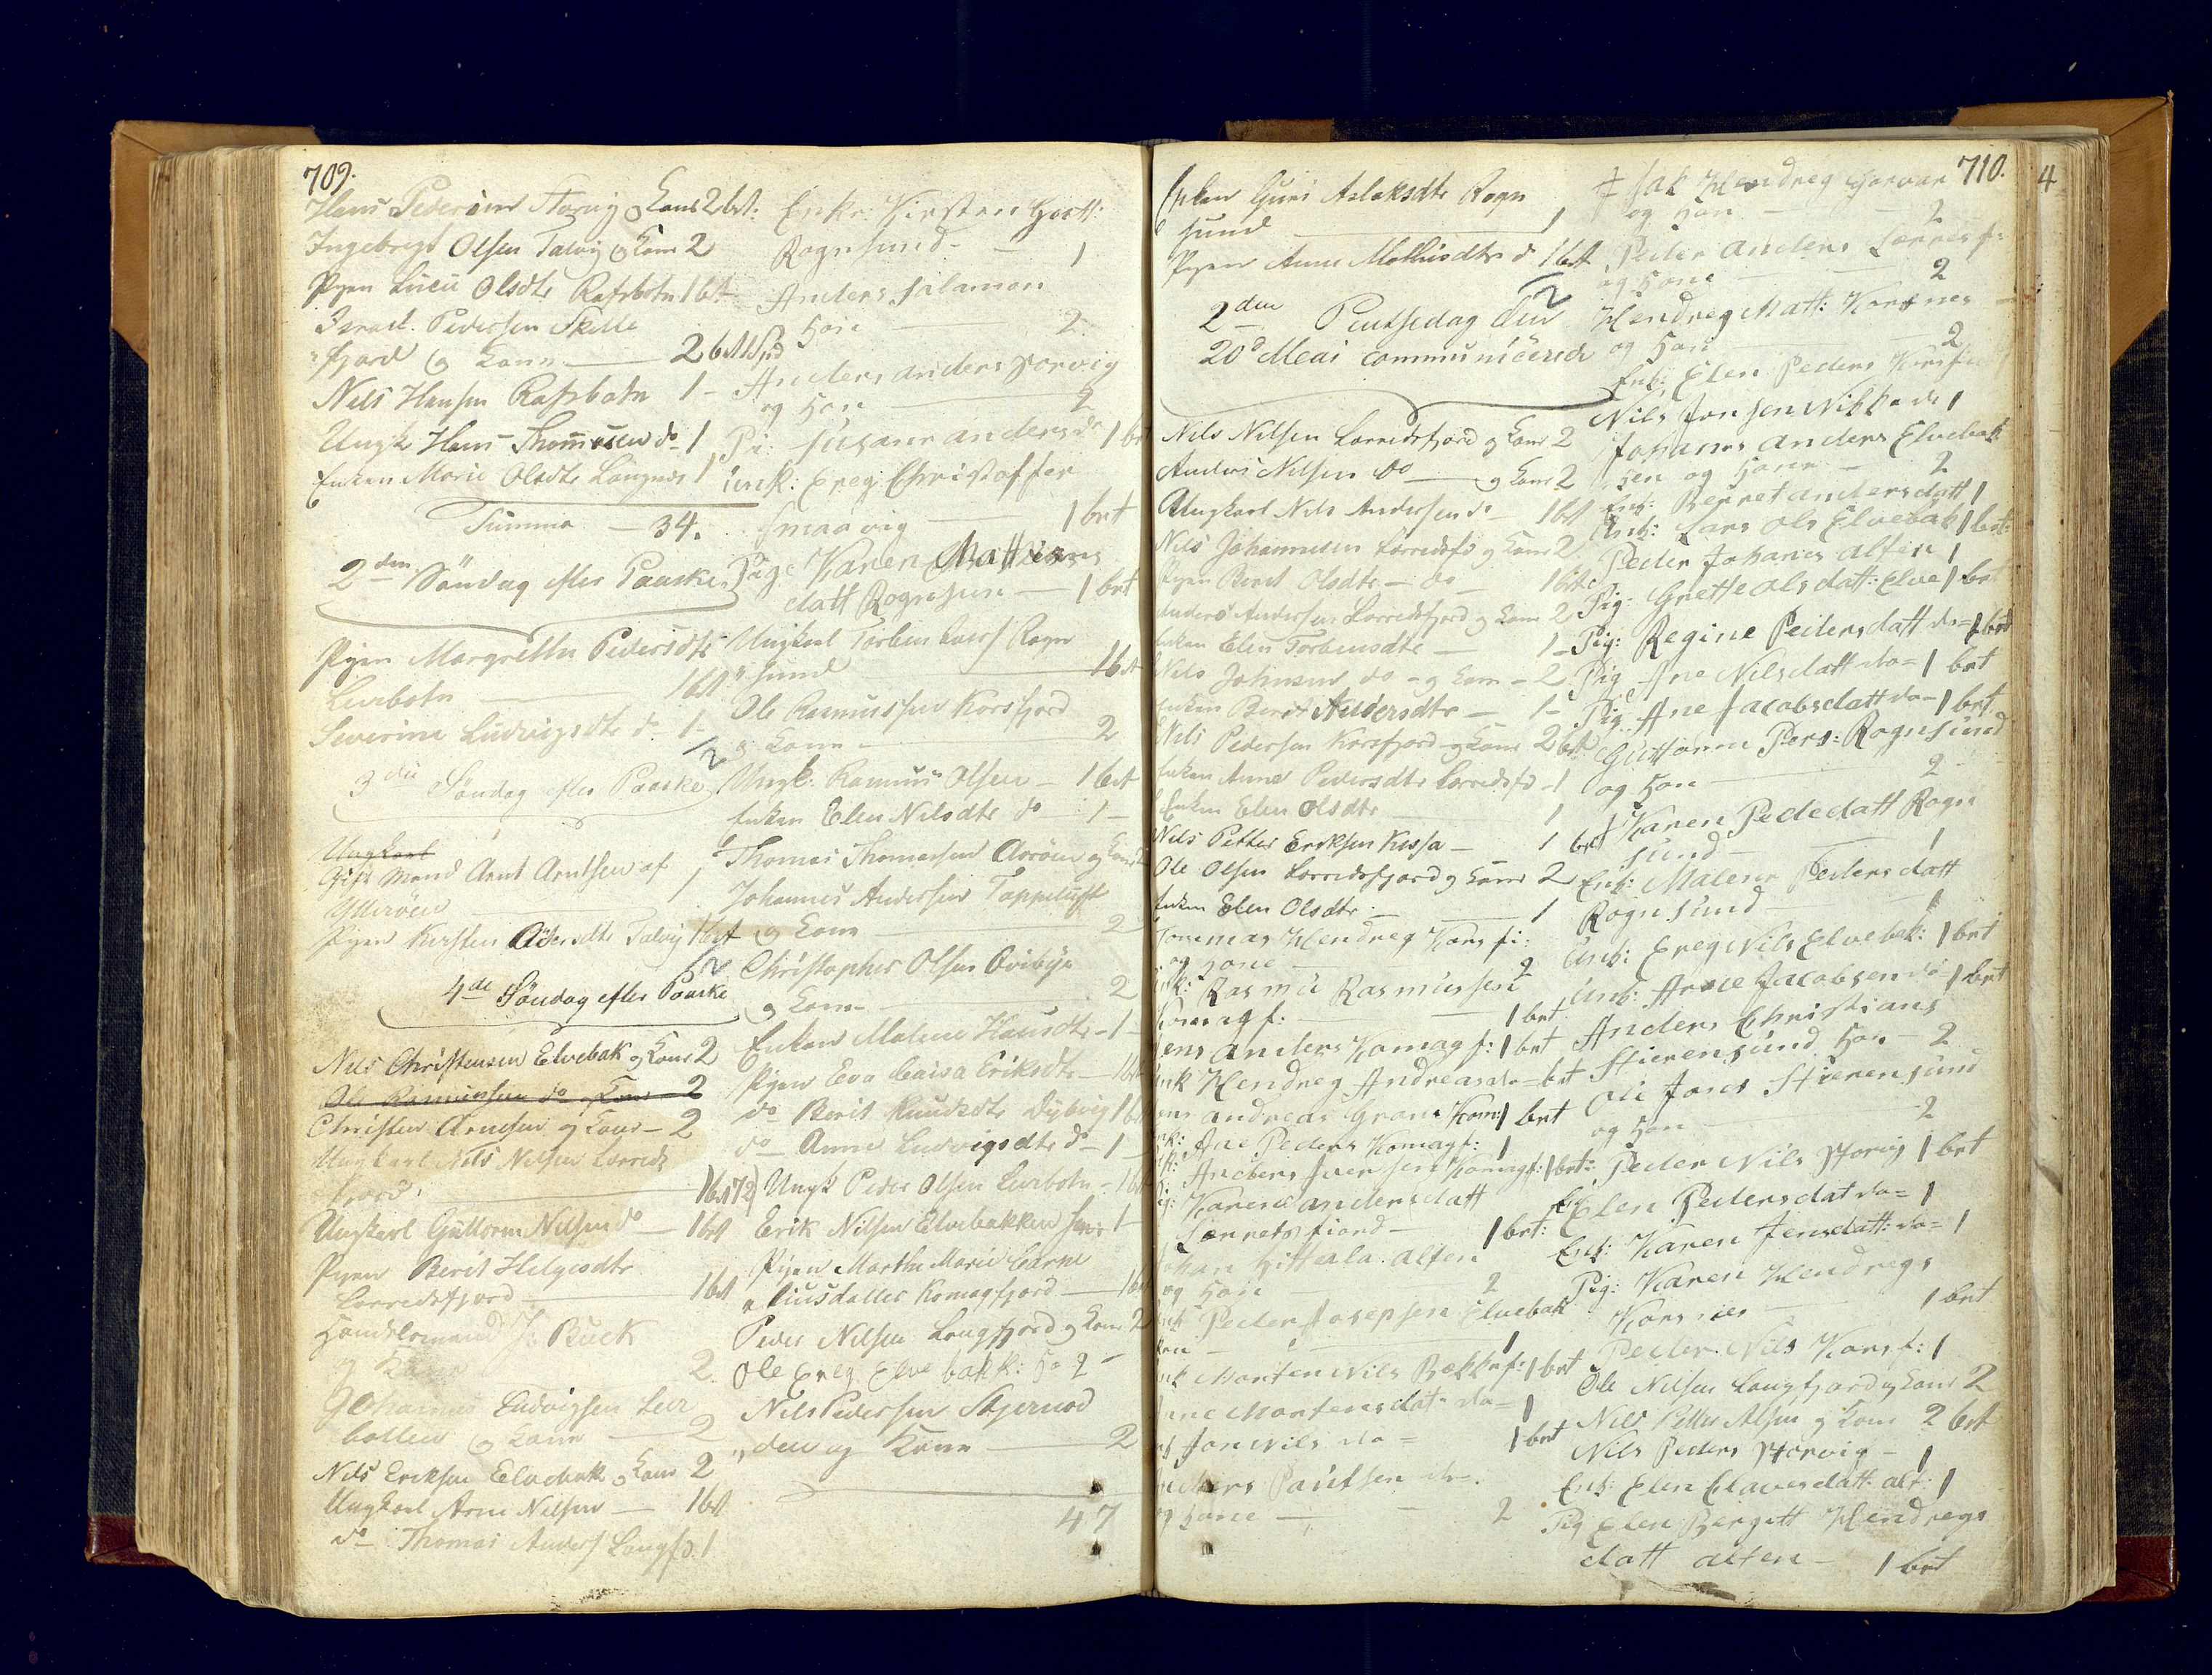 709.
Hans Pedersen Storvig og Kone 2 bet:
Ingebregt Olsen Talvig og Kone 2
Pigen Lucie Olsdtr Rafsbotn 1 bet
Israel Pedersen Skille
fjord og Kone — 2 bet
Nils Hansen Rafsbotn 1 –
Ungk Hans Thomesen do 1
Enken Marie Olsdtr Langnes 1
Summa — 34.
2den Søndag efter Paaske
Pigen Margrethe Pedersdtr
Leirbotn — 1 bet
Severine Ludvigsdtr do – 1 –
2
3die Søndag efter Paaske
Ungkarl
Gift Mand Arnt Arntsen af
Ytterøen — 1
Pigen Kirsten Talvig 1 bet
2
4de Søndag efter Paaske
Nils Christensen Elvebak og Kone 2
Ole Rasmussen do og Kone 2
Christen Arnesen og Kone – 2
Ungkarl Nils Nilsen Lerreds
fjord — 1 bet
Ungkarl Guttorm Nilsen do — 1 bet
Pigen Berit Helgesdtr
Lerredsfjord — 1 bet
Handelsmand Buck
og Kone 2
Johannes Ludvigsen Leir
botten og Kone — 2
Nils Eriksen Elvebak og Kone 2
Ungkarl Arne Nilsen — 1 bet
do Thomas Anders Langfd. 1
Enke: Kirsten Gutt:
Rognsund — 1
Anders Salamon
Kone — 2
Anders Anders Storvig
og Kone 2
Pi: Susann anders do 1 bet
unk: Ereg Christoffer
Smaavig — 1 bet
Pige Karen Mathias
datt Rognsun — 1 bet
Ungkarl Torben Rogn
sund — 1 bet
Ole Rasmussen Korsfjord
og Kone — 2
Ungk. Rasmus Olsen — 1 bet
Enken Elen Nilsdtr do 1 –
Thomas Thomassen Aarøen og Kone 2
Johannes Andersen Tappeluft
og Kone — 2
Christopher Olsen Qvibye
og Kone — 2
Enken Malene Hansdtr – 1 –
Pigen Eva Caisa Eriksdtr — 1 bet
do Berit Knudsdtr Dybvig 1 bet
do – Anne Ludvigsdtr do – 1 –
Ungk Peder Olsen Leirbotn – 1 bet
Erik Nilsen Elvebakken 1 –
Pigen Marthe Marie
datter Komagfjord — 1 bet
Peder Nilsen Langfjord og Kone 2
Ole Ereg Elvebakk: Ko 2
Nils Pedersen Stjernod
den og Kone — 2
47
710.
4
Enken Guri Aslaksdtr Rogn
sund — 1
Pigen Anne Mathisdtr do 1 bet
2
2den Pintsedag den
20d Meai communicerede
Nils Nilsen Lerredsfjord og Kone 2
Anders Nilsen do — og Kone 2
Ungkarl Nils Andersen do – 1 bet
Nils Johannesen Lerredsfd og Kone 2
Pigen Berit Olsdtr — do — 1 bet
Anders Andersen Lerredsfjord og Kone 2
Enken Elen Torbensdtr — 1 –
Nils Johnsen do – og Kone – 2
Enken Berit Andersdtr — 1 –
Nils Pedersen Korsfjord og Kone 2 bet
Enken Anne Pedersdtr Lerredsfd – 1
Enken Elen Olsdtr 1
Nils Petter Eriksen Kissa — 1 bet
Ole Olsen Lerredsfjord og Kone 2
Enken Elen Olsdtr — 1
Tommas Hendreg Kors fi:
og Kone — 2
unk: Rasmu Rasmussen
Komagf: — 1 bet
Jens Anders Komagf: 1 bet
unk Hendreg Andreas do = bet
andreas Grane Kom: 1 bet
Ane Peders Komagf: 1
Anders Iversen Komagf: 1 bet:
Pig: Karen andersdatt
Lerretsfiord — 1 bet:
Johan Hittala. Alten
og Kone 2
Enk Peder Josepsen Elvebak
ken — 1
unk Morten Nils Bekkof: 1 bet
Ane Mortensdat do = 1
Jon Nils do = 1 bet
Anders Paulsen do =
og Kone — 2
Isak Hendreg
og Kone — 2
Peder Anders Lerresf:
og Kone 2
Hendreg Matt: Korsnes
og Kone — 2
Enk: Elen Peders Korsf
Nils Jonsen Nibba do 1
Johanes Anders Elvebak
ken og Kone — 2
Enk: Berret andersdatt 1
Unk: Lars Ols Elvebak 1 bet:
Peder Johanes Alten 1
Pig: Grette Olsdatt: Elve 1 bet
Pig: Regine Pedersdatt do = 1 bet
Pig Ane Nilsdatt do = 1 bet
Pig Ane Jacobsdatt do – 1 bet
Guttorm Pers: Rognsund
og Kone 2
Karen Pededatt Rogn
sund 1
Enk: Malene Pedersdatt
Rognsund — 1
Unk: Ereg Nils Elvebak: 1 bet
Unk: Arne Jacobsen do 1 bet
Anders Christians
Stierensund Kone – 2
Ole Jons Stierensund
og Kone 2
Peder Nils Storvig 1 bet
Elen Pedersdat do = 1
Enk: Karen Jensdatt: do = 1
Pig: Karen Hendregs
Korsnes — 1 bet
Peder Nils Korsf: 1
Ole Nilsen Langfjord og Kone 2
Nils Petter Alsen og Kone 2 bet
Nils Peders Storvig — 1
Enk: Elen Clavesdatt. alt: 1
Pig Elen Birgitt Hendregs
datt alten — 1 bet